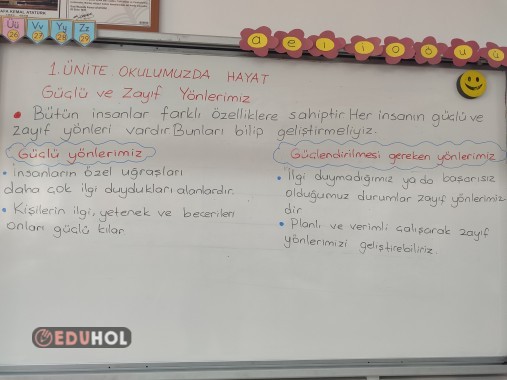 Üü Vv Yy Zz
26 27 28 29
a e ı i o ö u ü
1. ÜNİTE OKULUMUZDA HAYAT
Güçlü ve Zayıf Yönlerimiz
• Bütün insanlar farklı özelliklere sahiptir Her insanın güçlü ve
zayıf yönleri vardır Bunları bilip geliştirmeliyiz.
Güçlü yönlerimiz
• İnsanların özel uğraşları
daha çok ilgi duydukları alanlardır.
• Kişilerin ilgi, yetenek ve becerileri
onları güçlü kılar
Güçlendirilmesi gereken yönlerimiz
• İlgi duymadığımız ya da başarısız
olduğumuz durumlar zayıf yönlerimiz
dir
• Planlı ve verimli çalışarak zayıf
yönlerimizi geliştirebiliriz.
EDUHOL